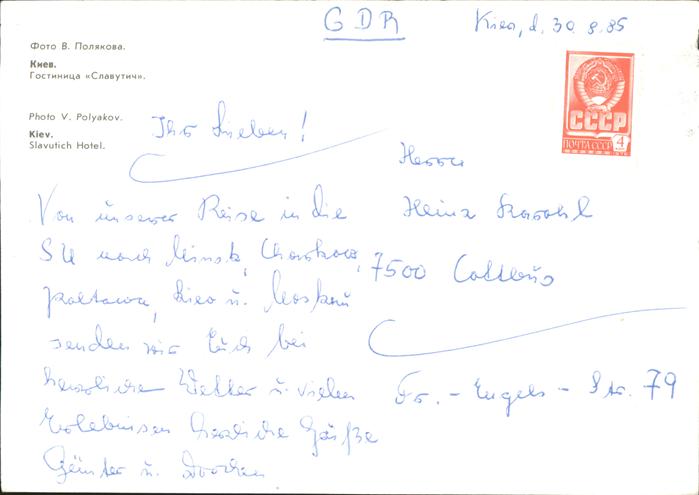 GDR
Kiev, d. 30.8.85
Фото В. Полякова.
Киев.
Гостиница «Славутич».
Photo V. Polyakov.
Kiev.
Slavutich Hotel.
СССР
ПОЧТА СССР 4
Ihr Lieben!
Von unserer Reise in die
SU nach Minsk, Charkow,
Poltawa, Kiev u. Moskau
senden wir Euch bei
herrliche Wetter u. vielen
Erlebnissen herzliche Grüße
Günter u.
Herrn
Heinz
7500 Cottbus
Fr.-Engels-Str. 79